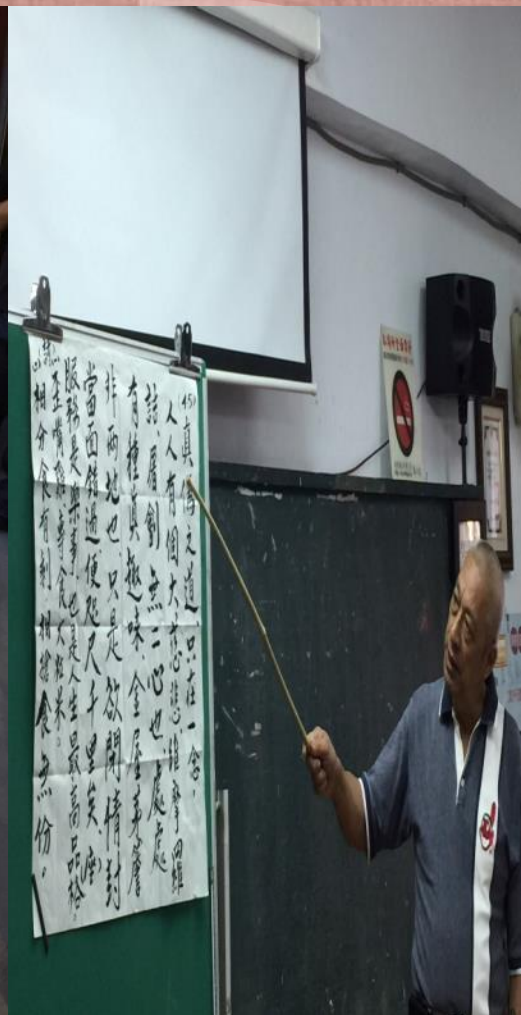 (45)真偽之道.只在一念.
人人有個大慈悲維摩羅
詰.屠劊.無二心也.處處
有種真趣味.金屋茅簷
非兩地也.只是欲閉情封
當面錯過.便咫尺千里矣.(座)
服務是樂事.也是人生最高品格.
歪嘴雞.專食大粒米。
相分食有剩.相搶食無份。